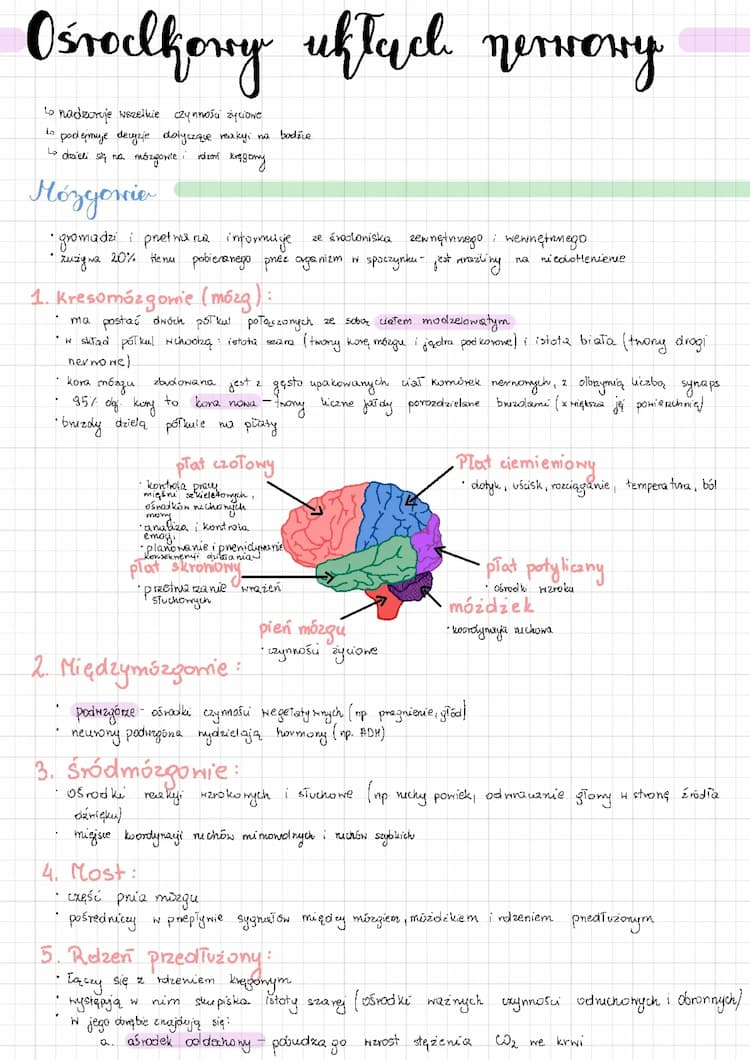 Ośrodkowy układ nerwowy
↳ nadzoruje wszelkie czynności życiowe
↳ podejmuje decyzje dotyczące reakcji na bodźce
↳ dzieli się na mózgowie i rdzeń kręgowy
Mózgowie
• gromadzi i przetwarza informacje ze środowiska zewnętrznego i wewnętrznego
• zużywa 20% tlenu pobieranego przez organizm w spoczynku - jest wrażliwy na niedotlenienie
1. Kresomózgowie (mózg):
• ma postać dwóch półkul połączonych ze sobą ciałem modzelowatym
• w skład półkul wchodzą: istota szara (tworzy korę mózgu i jądra podkorowe) i istota biała (tworzy drogi
nerwowe)
• kora mózgu zbudowana jest z gęsto upakowanych ciał komórek nerwowych, z olbrzymią liczbą synaps
• 95% obj. kory to kora nowa - tworzy liczne fałdy porozdzielane bruzdami (zwiększa jej powierzchnię)
• bruzdy dzielą półkule na płaty
płat czołowy
• kontrola pracy
mięśni szkieletowych,
ośrodków ruchowych
mowy
• analiza i kontrola
emocji
• planowanie i przewidywanie
konsekwencji działania
Płat ciemieniowy
• dotyk, ucisk, rozciąganie, temperatura, ból
płat skroniowy
• przetwarzanie wrażeń
słuchowych
płat potyliczny
• ośrodki wzroku
móżdżek
• koordynacja ruchowa
pień mózgu
• czynności życiowe
2. Międzymózgowie:
• podwzgórze - ośrodki czynności wegetatywnych (np pragnienie, głód)
• neurony podwzgórza wydzielają hormony (np. ADH)
3. Śródmózgowie:
• ośrodki reakcji wzrokowych i słuchowe (np ruchy powiek, odwracanie głowy w stronę źródła
dźwięku)
• miejsce koordynacji ruchów mimowolnych i ruchów szybkich
4. Most:
• część pnia mózgu
• pośredniczy w przepływie sygnałów między mózgiem, móżdżkiem i rdzeniem przedłużonym
5. Rdzeń przedłużony:
• łączy się z rdzeniem kręgowym
• występują w nim skupiska istoty szarej (ośrodki ważnych czynności odruchowych i obronnych)
• w jego obrębie znajdują się:
a. ośrodek oddechowy - pobudza go wzrost stężenia CO₂ we krwi